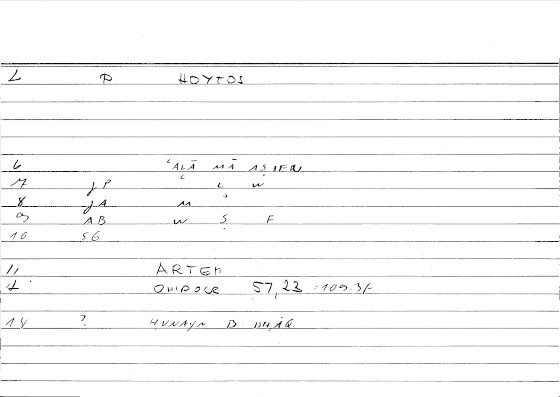 L P HOYTOS
6 ʿALĀ MĀ AṢIFU
7 JP ʿ L W
8 JA M ʾ
9 AB W Ṣ F
10 SG
11 ARTEM
12 ONIROCR 57,23 :109.3f
14 ? ḤUNAYN B